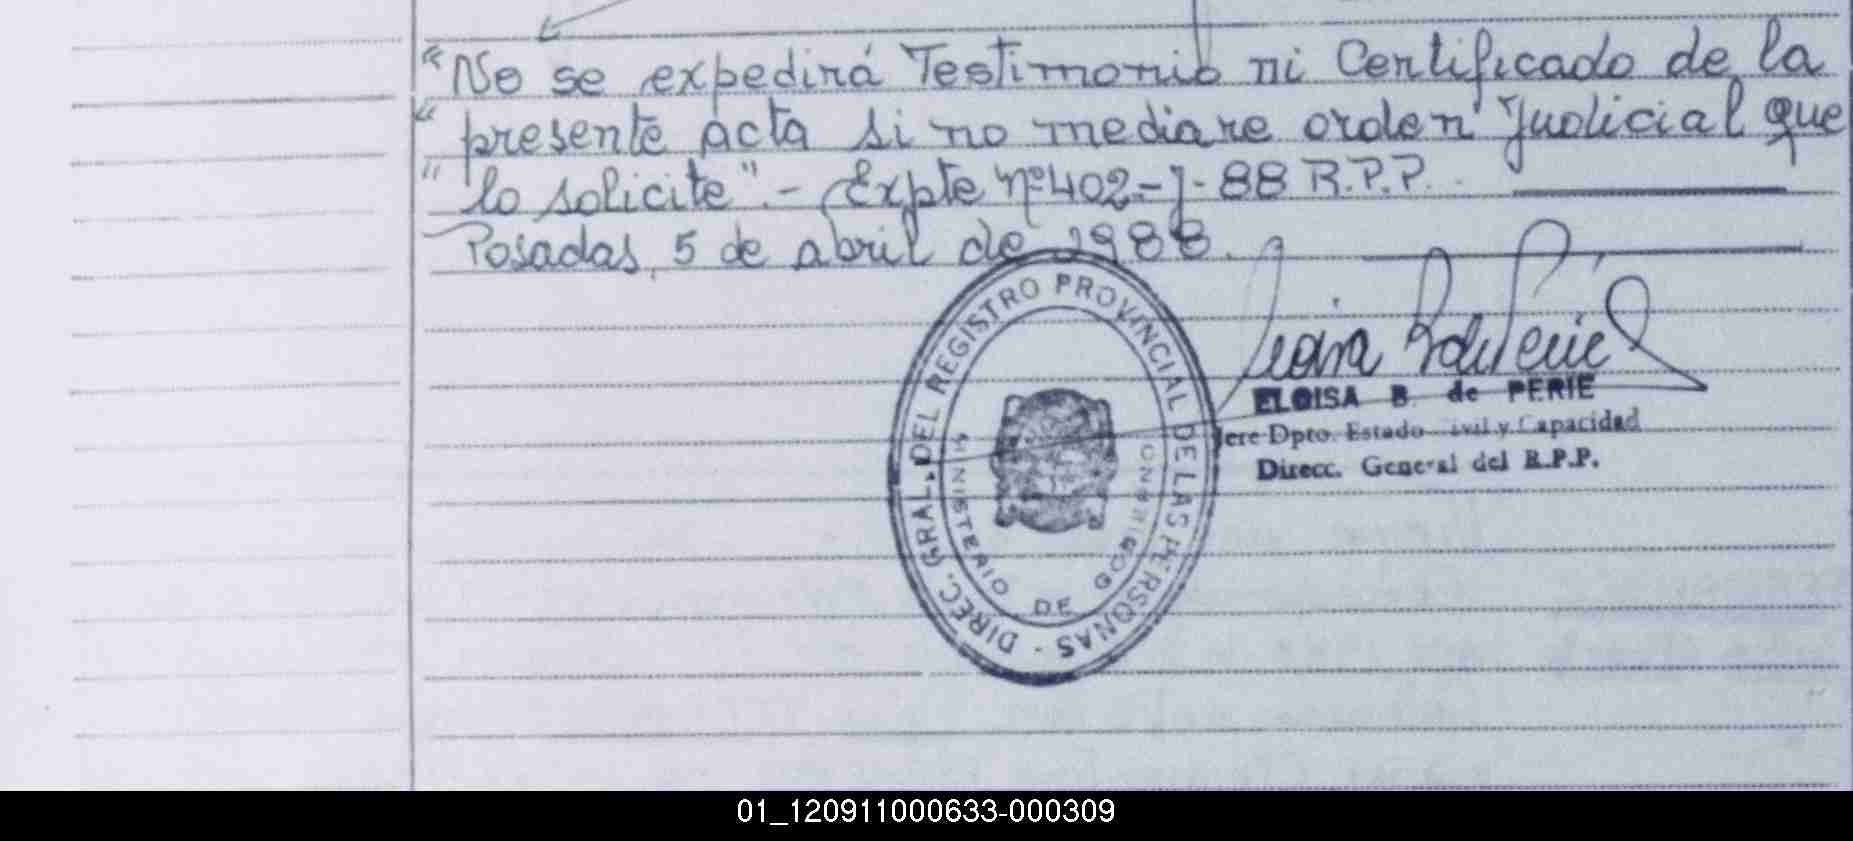 "No se expedirá Testimonio ni Certificado de la
" presente acta si no mediare orden Judicial que
" lo solicite".- Expte nº 402-J-88 R.P.P.
Posadas, 5 de abril de 1988.
DIREC. GRAL. DEL REGISTRO PROVINCIAL DE LAS PERSONAS -
MINISTERIO DE GOBIERNO
ELOISA B. de PERIE
Jefe Dpto. Estado Civil y Capacidad
Direcc. General del R.P.P.
01_120911000633-000309